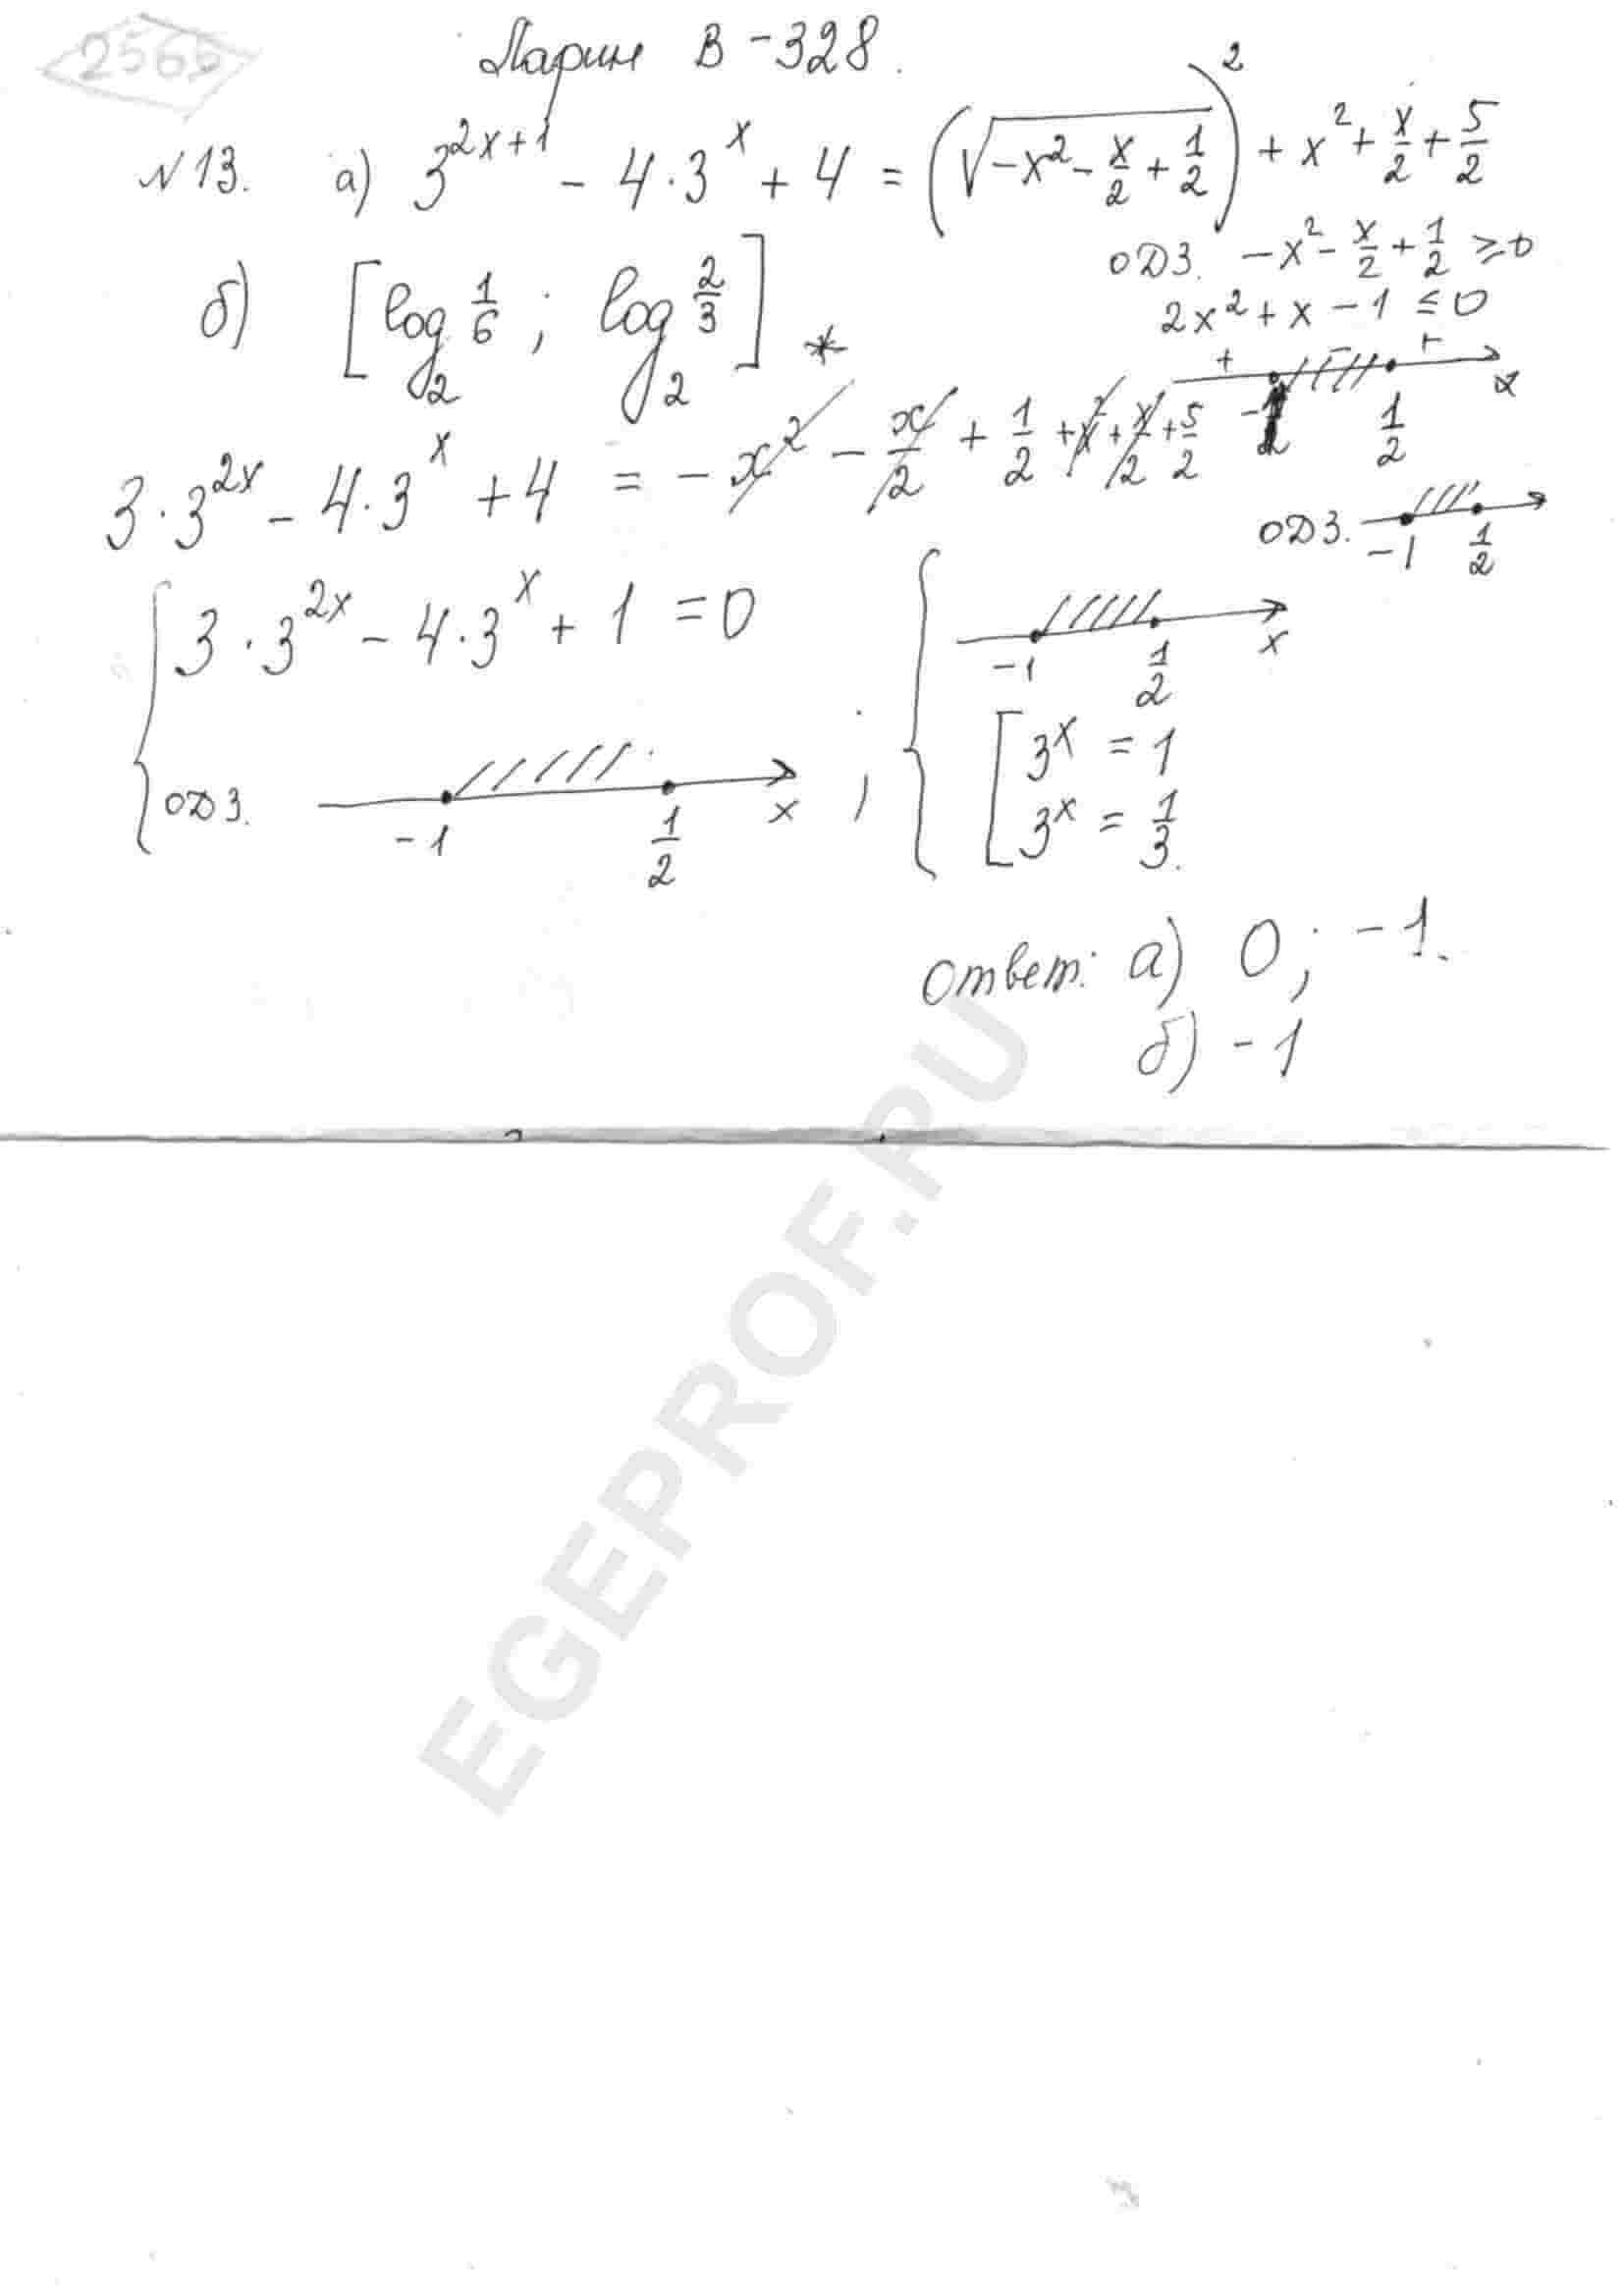 2565
Ларин В-328.
№13. а) 3^{2x+1} - 4·3^x + 4 = (√(-x² - x/2 + 1/2))² + x² + x/2 + 5/2
ОДЗ. -x² - x/2 + 1/2 ≥ 0
2x² + x - 1 ≤ 0
б) [log₂ 1/6 ; log₂ 2/3] *
+ - +
-1 1/2 x
3·3^{2x} - 4·3^x + 4 = -x² - x/2 + 1/2 + x² + x/2 + 5/2
ОДЗ. -1 1/2
{ 3·3^{2x} - 4·3^x + 1 = 0
ОДЗ. -1 1/2 x ;
{ -1 1/2 x
[ 3^x = 1
3^x = 1/3.
Ответ: а) 0; -1.
б) -1
EGEPROF.RU